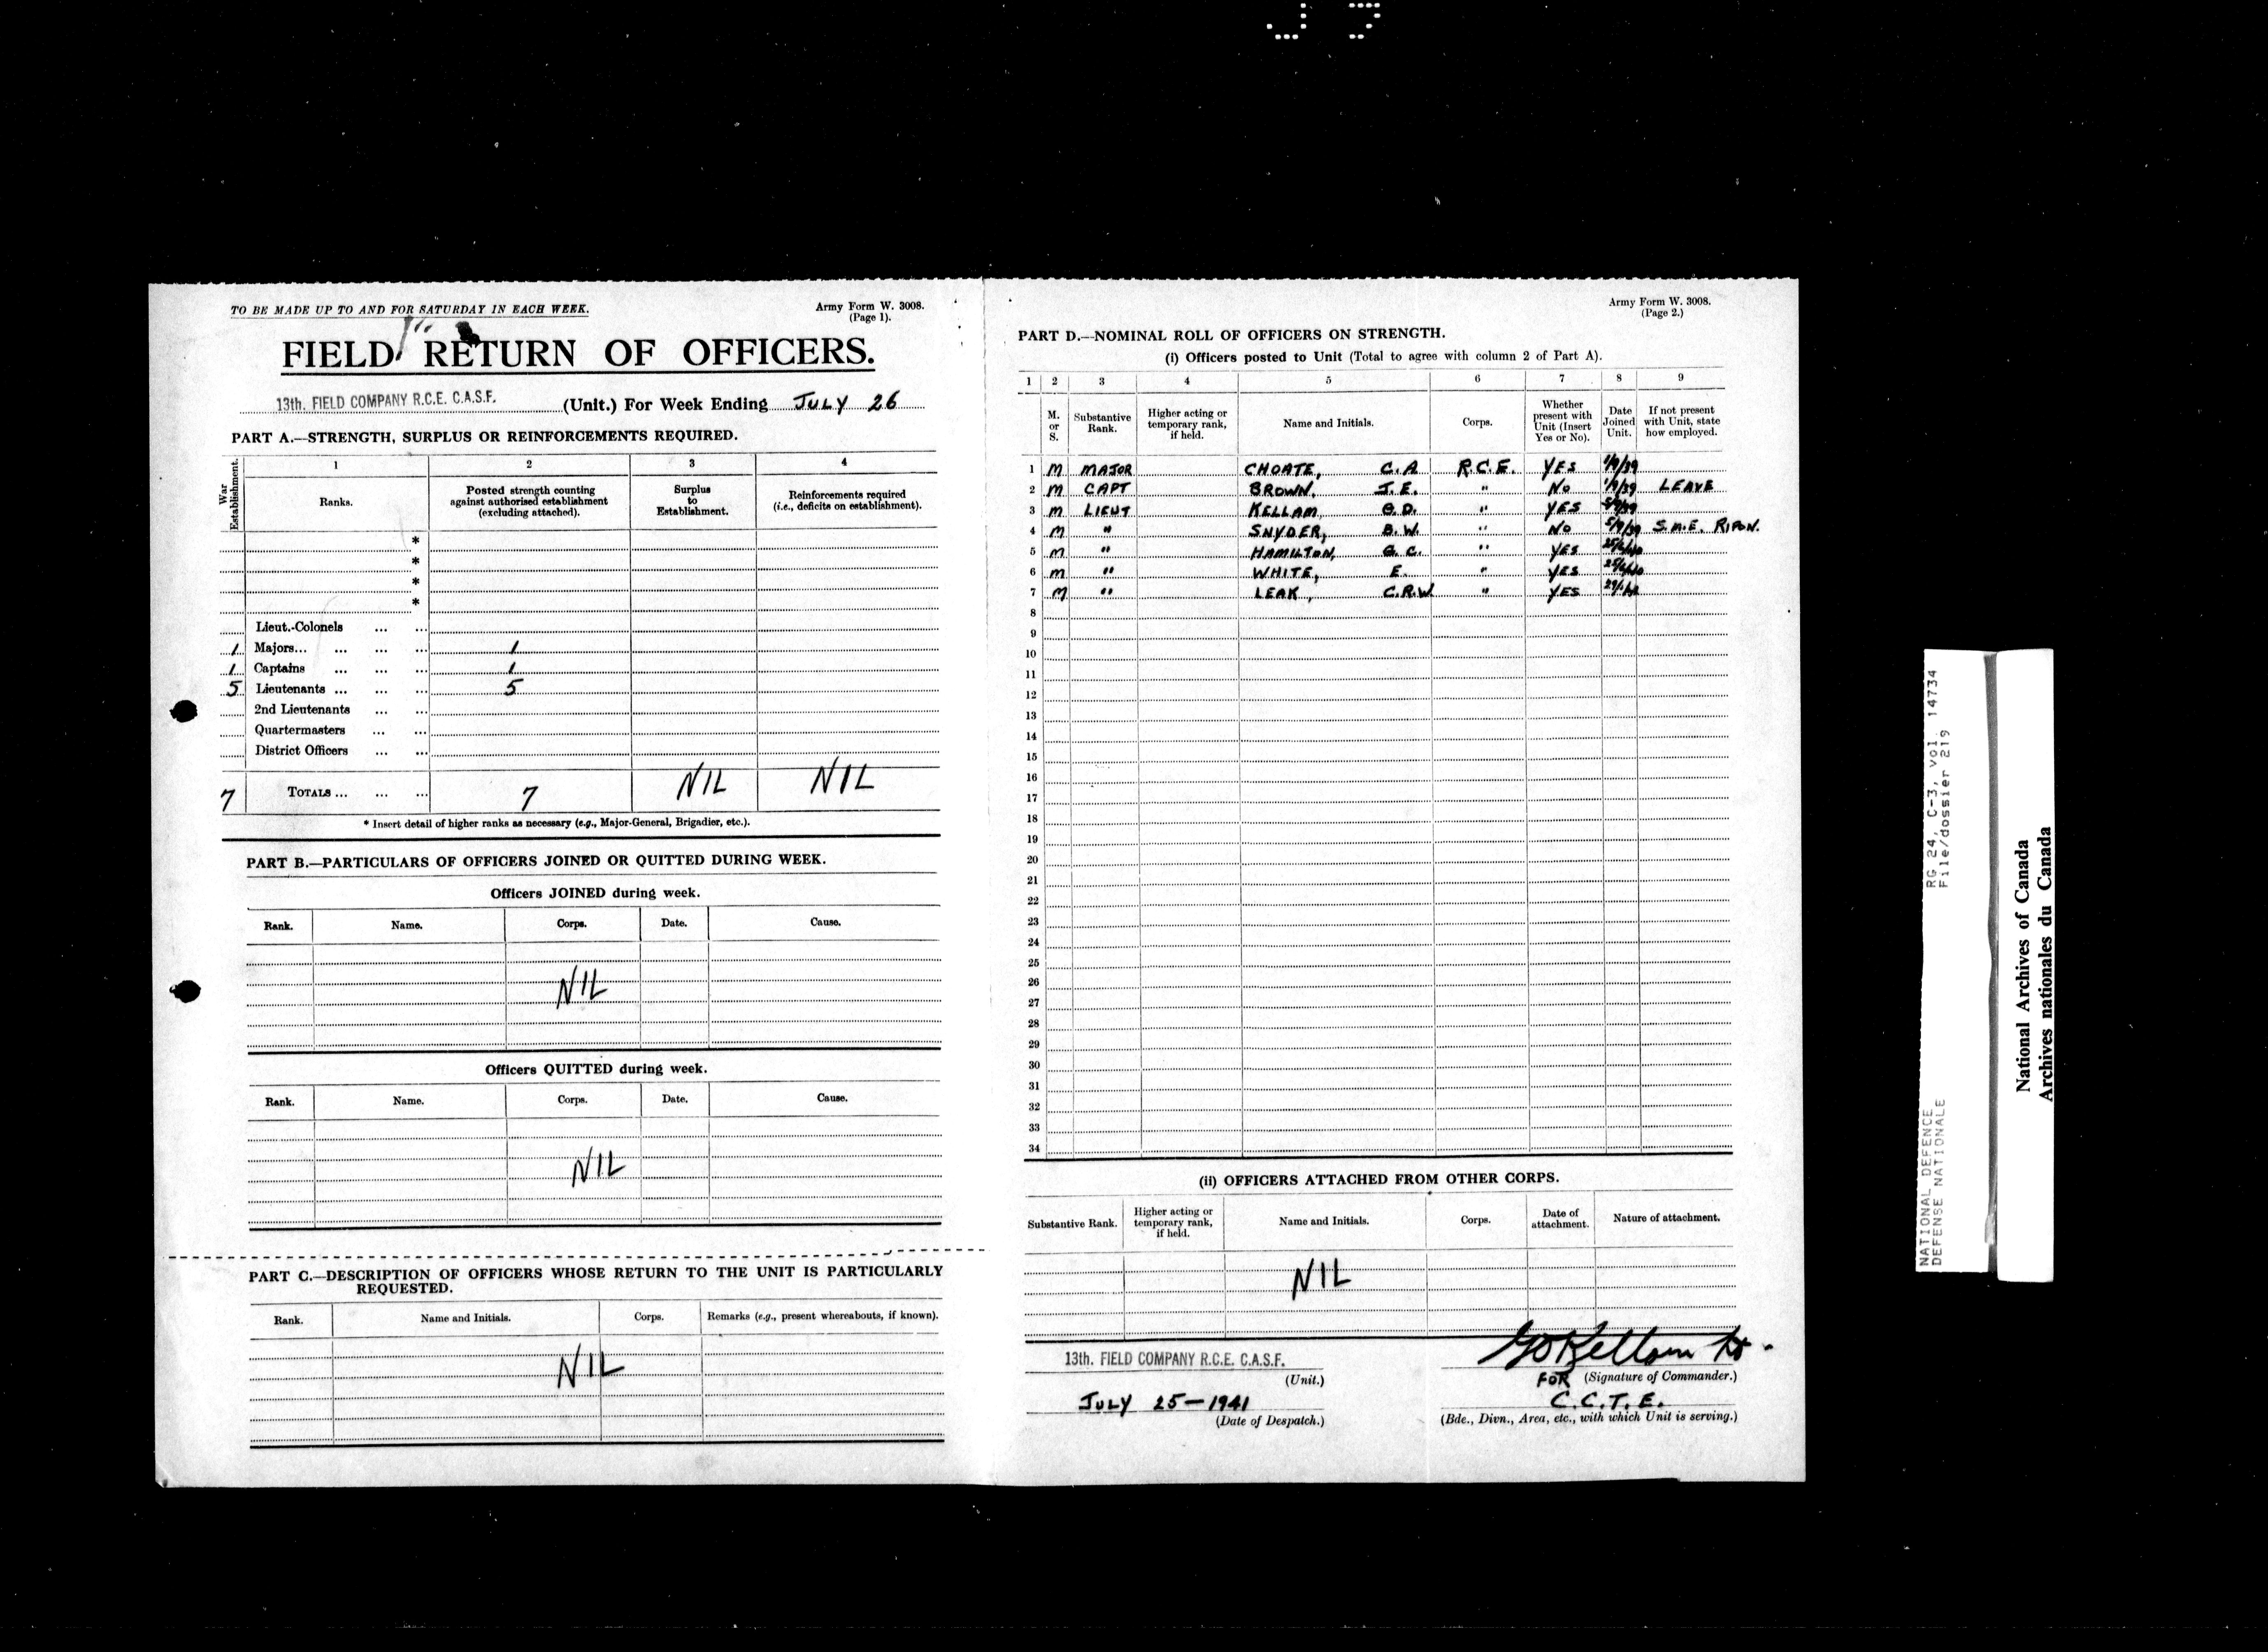 TO BE MADE UP TO AND FOR SATURDAY IN EACH WEEK.
Army Form W. 3008.
(Page 1).
FIELD RETURN OF OFFICERS.
13th. FIELD COMPANY R.C.E. C.A.S.F. (Unit.) For Week Ending JULY 26
PART A.—STRENGTH, SURPLUS OR REINFORCEMENTS REQUIRED.
War Establishment.
1 2 3 4
Ranks.
Posted strength counting against authorised establishment (excluding attached).
Surplus to Establishment.
Reinforcements required (i.e., deficits on establishment).
*
*
*
*
Lieut.-Colonels ... ...
1 Majors... ... ... ... 1
1 Captains ... ... ... 1
5 Lieutenants ... ... ... 5
2nd Lieutenants ... ...
Quartermasters ... ...
District Officers ... ...
7 TOTALS ... ... ... 7 NIL NIL
* Insert detail of higher ranks as necessary (e.g., Major-General, Brigadier, etc.).
PART B.—PARTICULARS OF OFFICERS JOINED OR QUITTED DURING WEEK.
Officers JOINED during week.
Rank. Name. Corps. Date. Cause.
NIL
Officers QUITTED during week.
Rank. Name. Corps. Date. Cause.
NIL
PART C.—DESCRIPTION OF OFFICERS WHOSE RETURN TO THE UNIT IS PARTICULARLY
REQUESTED.
Rank. Name and Initials. Corps. Remarks (e.g., present whereabouts, if known).
NIL
Army Form W. 3008.
(Page 2.)
PART D.—NOMINAL ROLL OF OFFICERS ON STRENGTH.
(i) Officers posted to Unit (Total to agree with column 2 of Part A).
1 2 3 4 5 6 7 8 9
M. or S.
Substantive Rank.
Higher acting or temporary rank, if held.
Name and Initials.
Corps.
Whether present with Unit (Insert Yes or No).
Date Joined Unit.
If not present with Unit, state how employed.
1 M MAJOR CHOATE, C.A R.C.E. YES 1/9/39
2 M CAPT BROWN, J.E. " NO 1/9/39 LEAVE
3 M LIEUT KELLAM G.D. " YES 5/9/39
4 M " SNYDER, B.W. " NO 5/9/39 S.M.E. RIPON.
5 M " HAMILTON, G.C. " YES
6 M " WHITE, E. " YES
7 M " LEAK, C.R.W " YES
8
9
10
11
12
13
14
15
16
17
18
19
20
21
22
23
24
25
26
27
28
29
30
31
32
33
34
(ii) OFFICERS ATTACHED FROM OTHER CORPS.
Substantive Rank.
Higher acting or temporary rank, if held.
Name and Initials.
Corps.
Date of attachment.
Nature of attachment.
NIL
13th. FIELD COMPANY R.C.E. C.A.S.F.
(Unit.)
JULY 25-1941
(Date of Despatch.)
GDKellam Lt.
FOR (Signature of Commander.)
C.C.T.E.
(Bde., Divn., Area, etc., with which Unit is serving.)
NATIONAL DEFENCE RG 24, C-3, vol. 14734
DEFENSE NATIONALE File/dossier 219
National Archives of Canada
Archives nationales du Canada